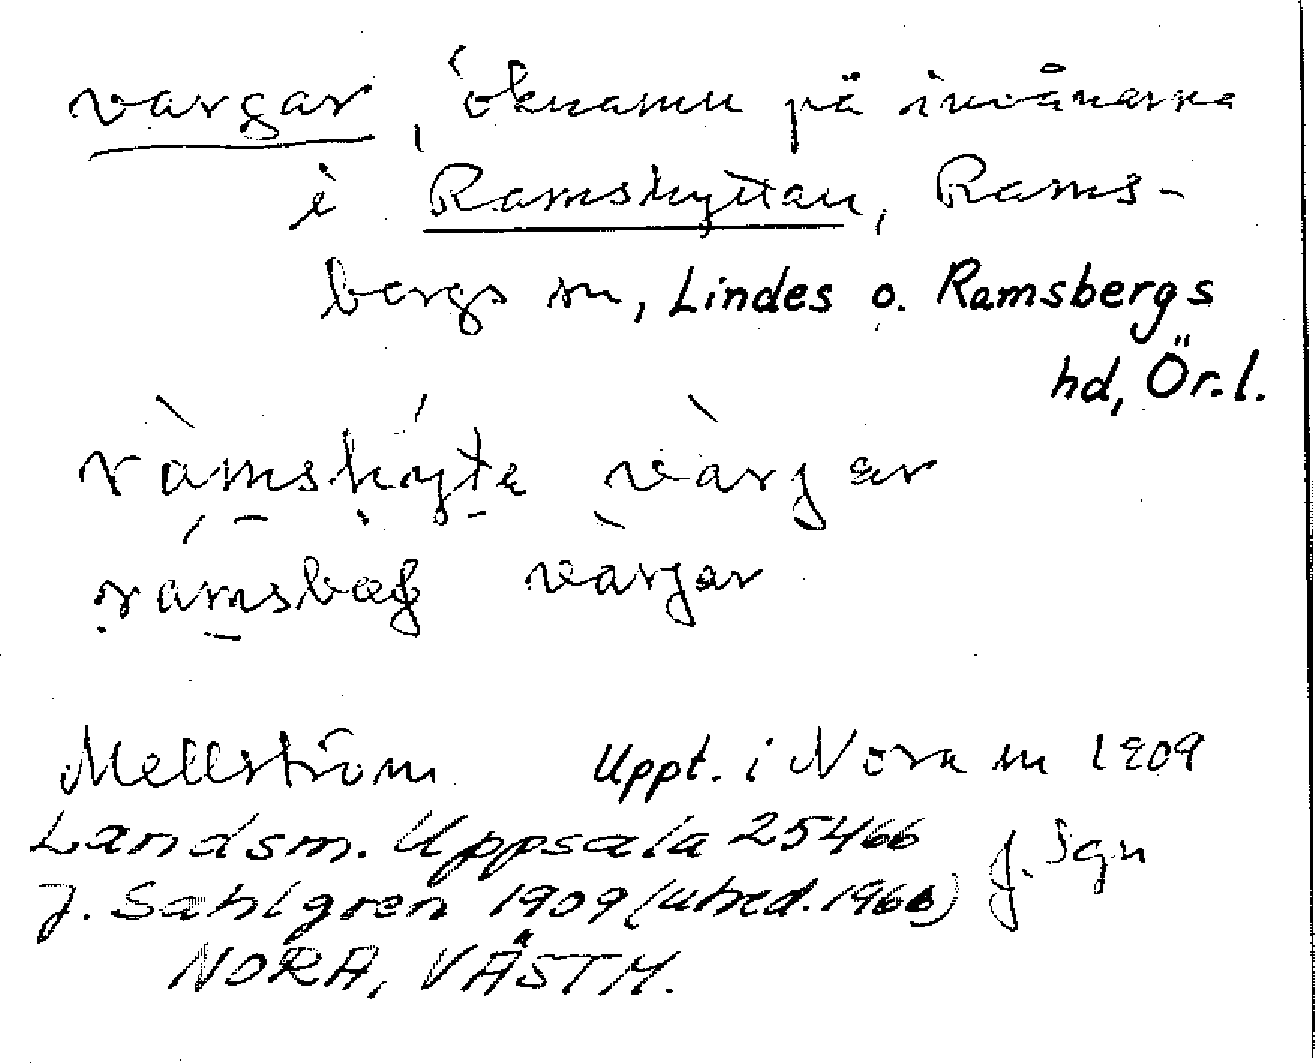 vargar, öknamn på invånarna
i Ramshyttan, Rams-
bergs sn, Lindes o. Ramsbergs
hd, Ör.l.
ràmshỳta vàrgar
ramsbæƷ vàrjar
Mellström Uppt. i Nora sn 1909
Landsm. Uppsala 25466
J. Sahlgren 1909 (utred. 1966) J. Sgn
NORA, VÄSTM.